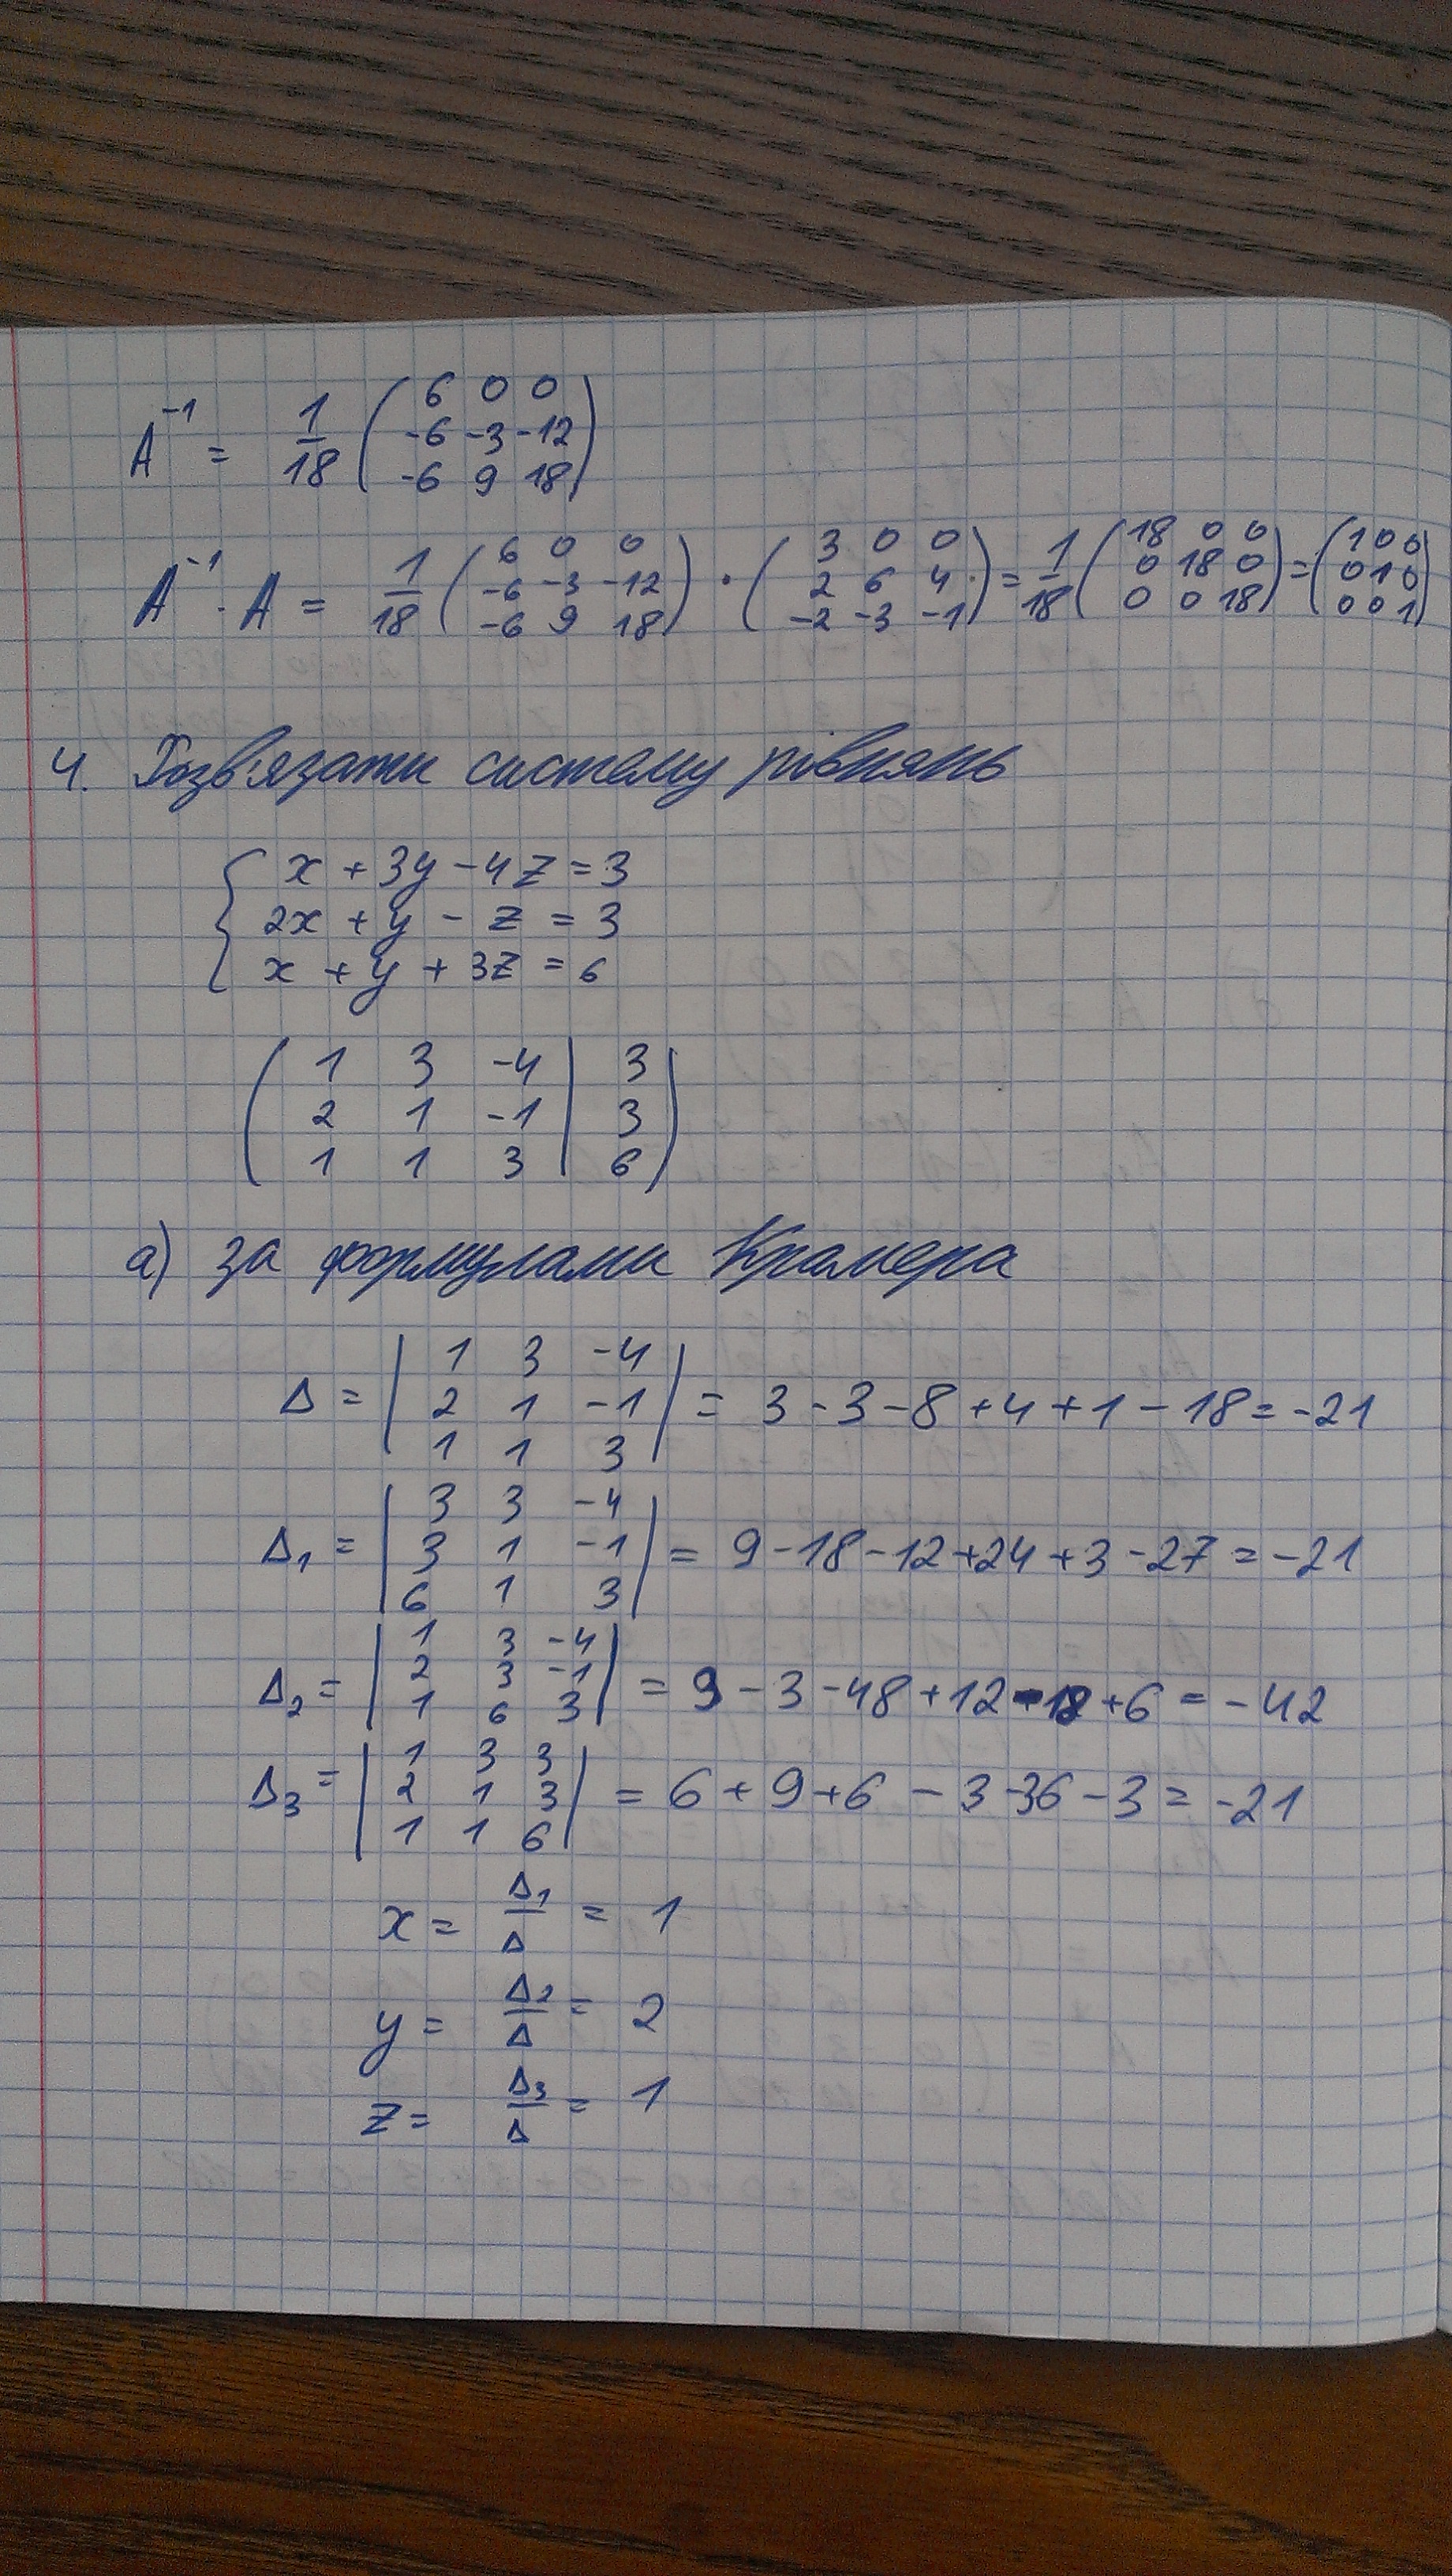 A⁻¹ = 1/18 ( 6 0 0 ; -6 -3 -12 ; -6 9 18 )
A⁻¹ · A = 1/18 ( 6 0 0 ; -6 -3 -12 ; -6 9 18 ) · ( 3 0 0 ; 2 6 4 ; -2 -3 -1 ) = 1/18 ( 18 0 0 ; 0 18 0 ; 0 0 18 ) = ( 1 0 0 ; 0 1 0 ; 0 0 1 )
4. Розв'язати систему рівнянь
x + 3y - 4z = 3
2x + y - z = 3
x + y + 3z = 6
( 1 3 -4 | 3
2 1 -1 | 3
1 1 3 | 6 )
а) за формулами Крамера
Δ = | 1 3 -4 ; 2 1 -1 ; 1 1 3 | = 3 - 3 - 8 + 4 + 1 - 18 = -21
Δ₁ = | 3 3 -4 ; 3 1 -1 ; 6 1 3 | = 9 - 18 - 12 + 24 + 3 - 27 = -21
Δ₂ = | 1 3 -4 ; 2 3 -1 ; 1 6 3 | = 9 - 3 - 48 + 12 - 18 + 6 = -42
Δ₃ = | 1 3 3 ; 2 1 3 ; 1 1 6 | = 6 + 9 + 6 - 3 - 36 - 3 = -21
x = Δ₁/Δ = 1
y = Δ₂/Δ = 2
z = Δ₃/Δ = 1